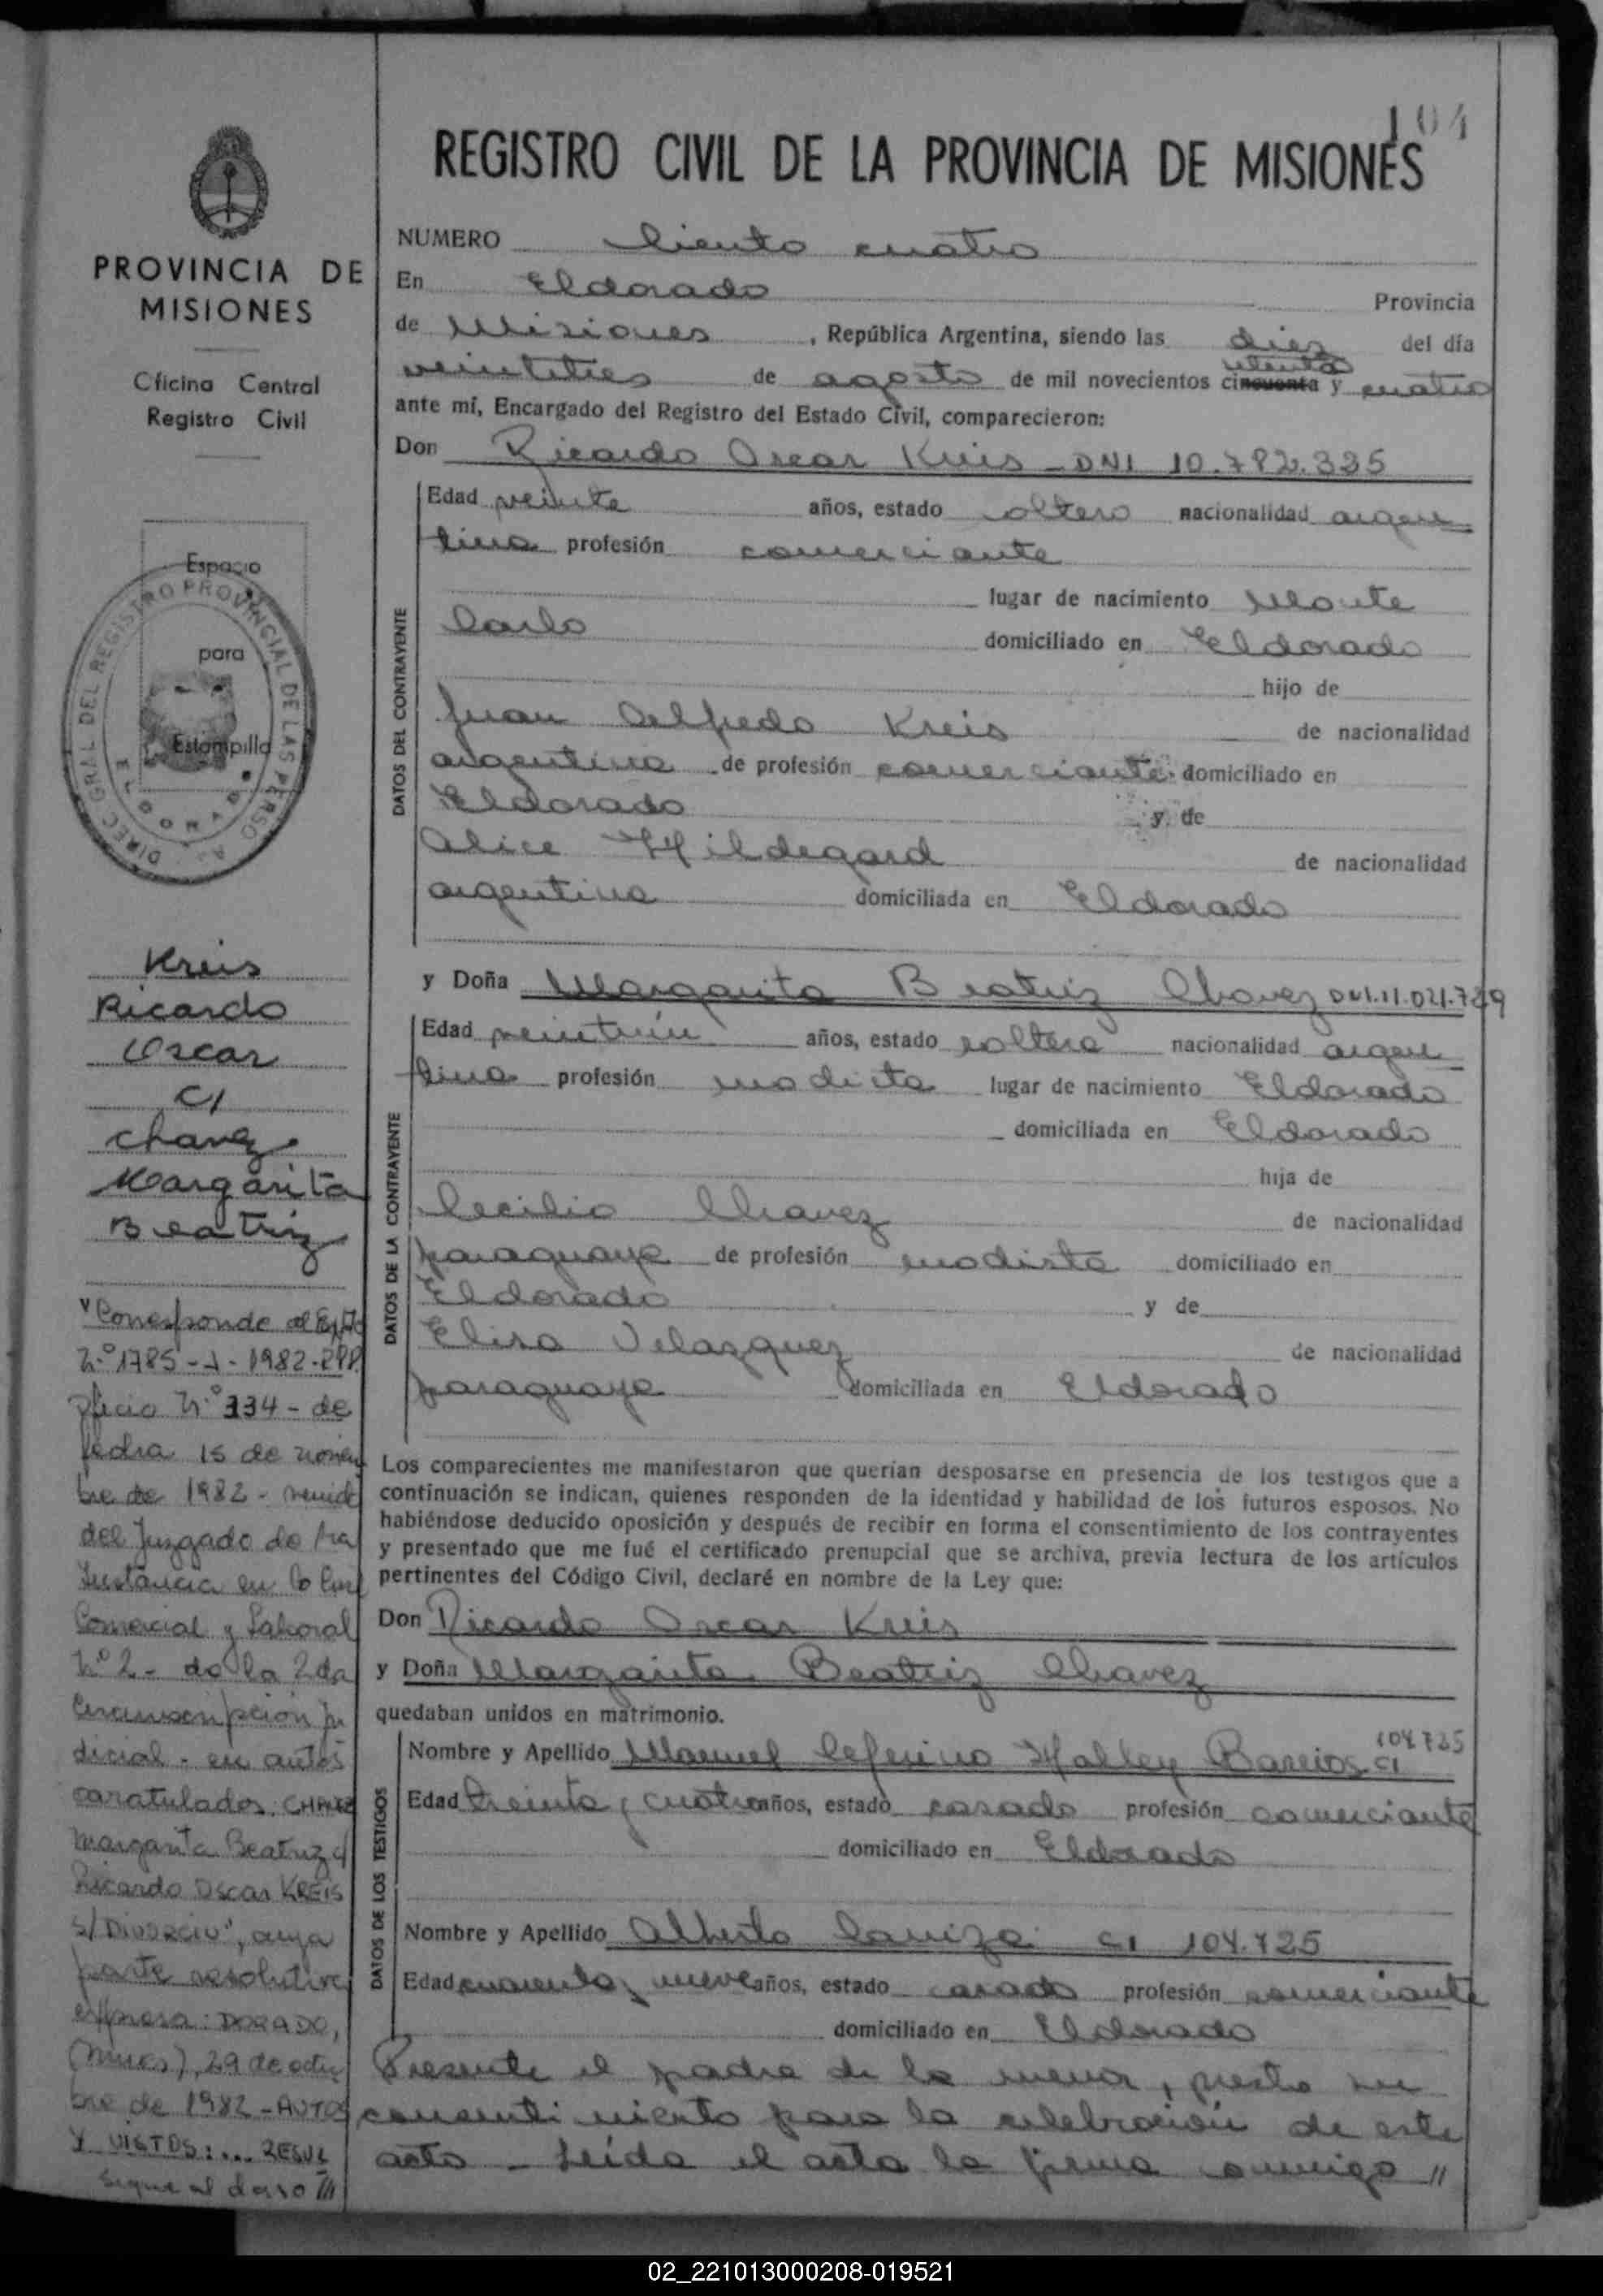 104
REGISTRO CIVIL DE LA PROVINCIA DE MISIONES
PROVINCIA DE
MISIONES
Oficina Central
Registro Civil
Espacio
para
Estampilla
DIREC. GRAL DEL REGISTRO PROVINCIAL DE LAS PERSONAS
ELDORADO
Kreis
Ricardo
Oscar
C/
Chavez
Margarita
Beatriz
"Corresponde al Expte
N.º 1785-J-1982-RPP.
oficio N.º 334 - de
fecha 15 de noviem
bre de 1982 - remide
del Juzgado de 1ra
Instancia en lo Civil
Comercial y Laboral
Nº 2 - de la 2da
Circunscripción ju
dicial - en autos
caratulados: CHAVEZ
Margarita Beatriz c/
Ricardo Oscar KREIS
s/ Divorcio", cuya
parte resolutiva
expresa: DORADO,
(Mnes), 29 de octu
bre de 1982 - AUTOS
Y VISTOS: ... RESUL
sigue al dorso ///
NUMERO Ciento cuatro
En Eldorado Provincia
de Misiones , República Argentina, siendo las diez del día
setenta
veintitres de agosto de mil novecientos cincuenta y cuatro
ante mí, Encargado del Registro del Estado Civil, comparecieron:
Don Ricardo Oscar Kreis - DNI 10.782.335
DATOS DEL CONTRAYENTE
Edad veinte años, estado soltero nacionalidad argen
tina profesión comerciante
lugar de nacimiento Monte
Carlo domiciliado en Eldorado
hijo de
Juan Alfredo Kreis de nacionalidad
argentina de profesión comerciante domiciliado en
Eldorado y de
Alice Hildegard de nacionalidad
argentina domiciliada en Eldorado
y Doña Margarita Beatriz Chavez DNI.11.021.729
DATOS DE LA CONTRAYENTE
Edad veintiún años, estado soltera nacionalidad argen
tina profesión modista lugar de nacimiento Eldorado
domiciliada en Eldorado
hija de
Cecilio Chavez de nacionalidad
paraguaya de profesión modista domiciliado en
Eldorado y de
Elisa Velazquez de nacionalidad
paraguaya domiciliada en Eldorado
Los comparecientes me manifestaron que querían desposarse en presencia de los testigos que a
continuación se indican, quienes responden de la identidad y habilidad de los futuros esposos. No
habiéndose deducido oposición y después de recibir en forma el consentimiento de los contrayentes
y presentado que me fué el certificado prenupcial que se archiva, previa lectura de los artículos
pertinentes del Código Civil, declaré en nombre de la Ley que:
Don Ricardo Oscar Kreis
y Doña Margarita Beatriz Chavez
quedaban unidos en matrimonio.
DATOS DE LOS TESTIGOS
Nombre y Apellido Manuel Ceferino Halley Barrios CI 104725
Edad treinta y cuatro años, estado casado profesión comerciante
domiciliado en Eldorado
Nombre y Apellido Alberto Caniza CI 104.725
Edad cuarenta y nueve años, estado casado profesión comerciante
domiciliado en Eldorado
Presente el padre de la menor, presta su
consentimiento para la celebración de este
acto - Leída el acta la firma conmigo //
02_221013000208-019521